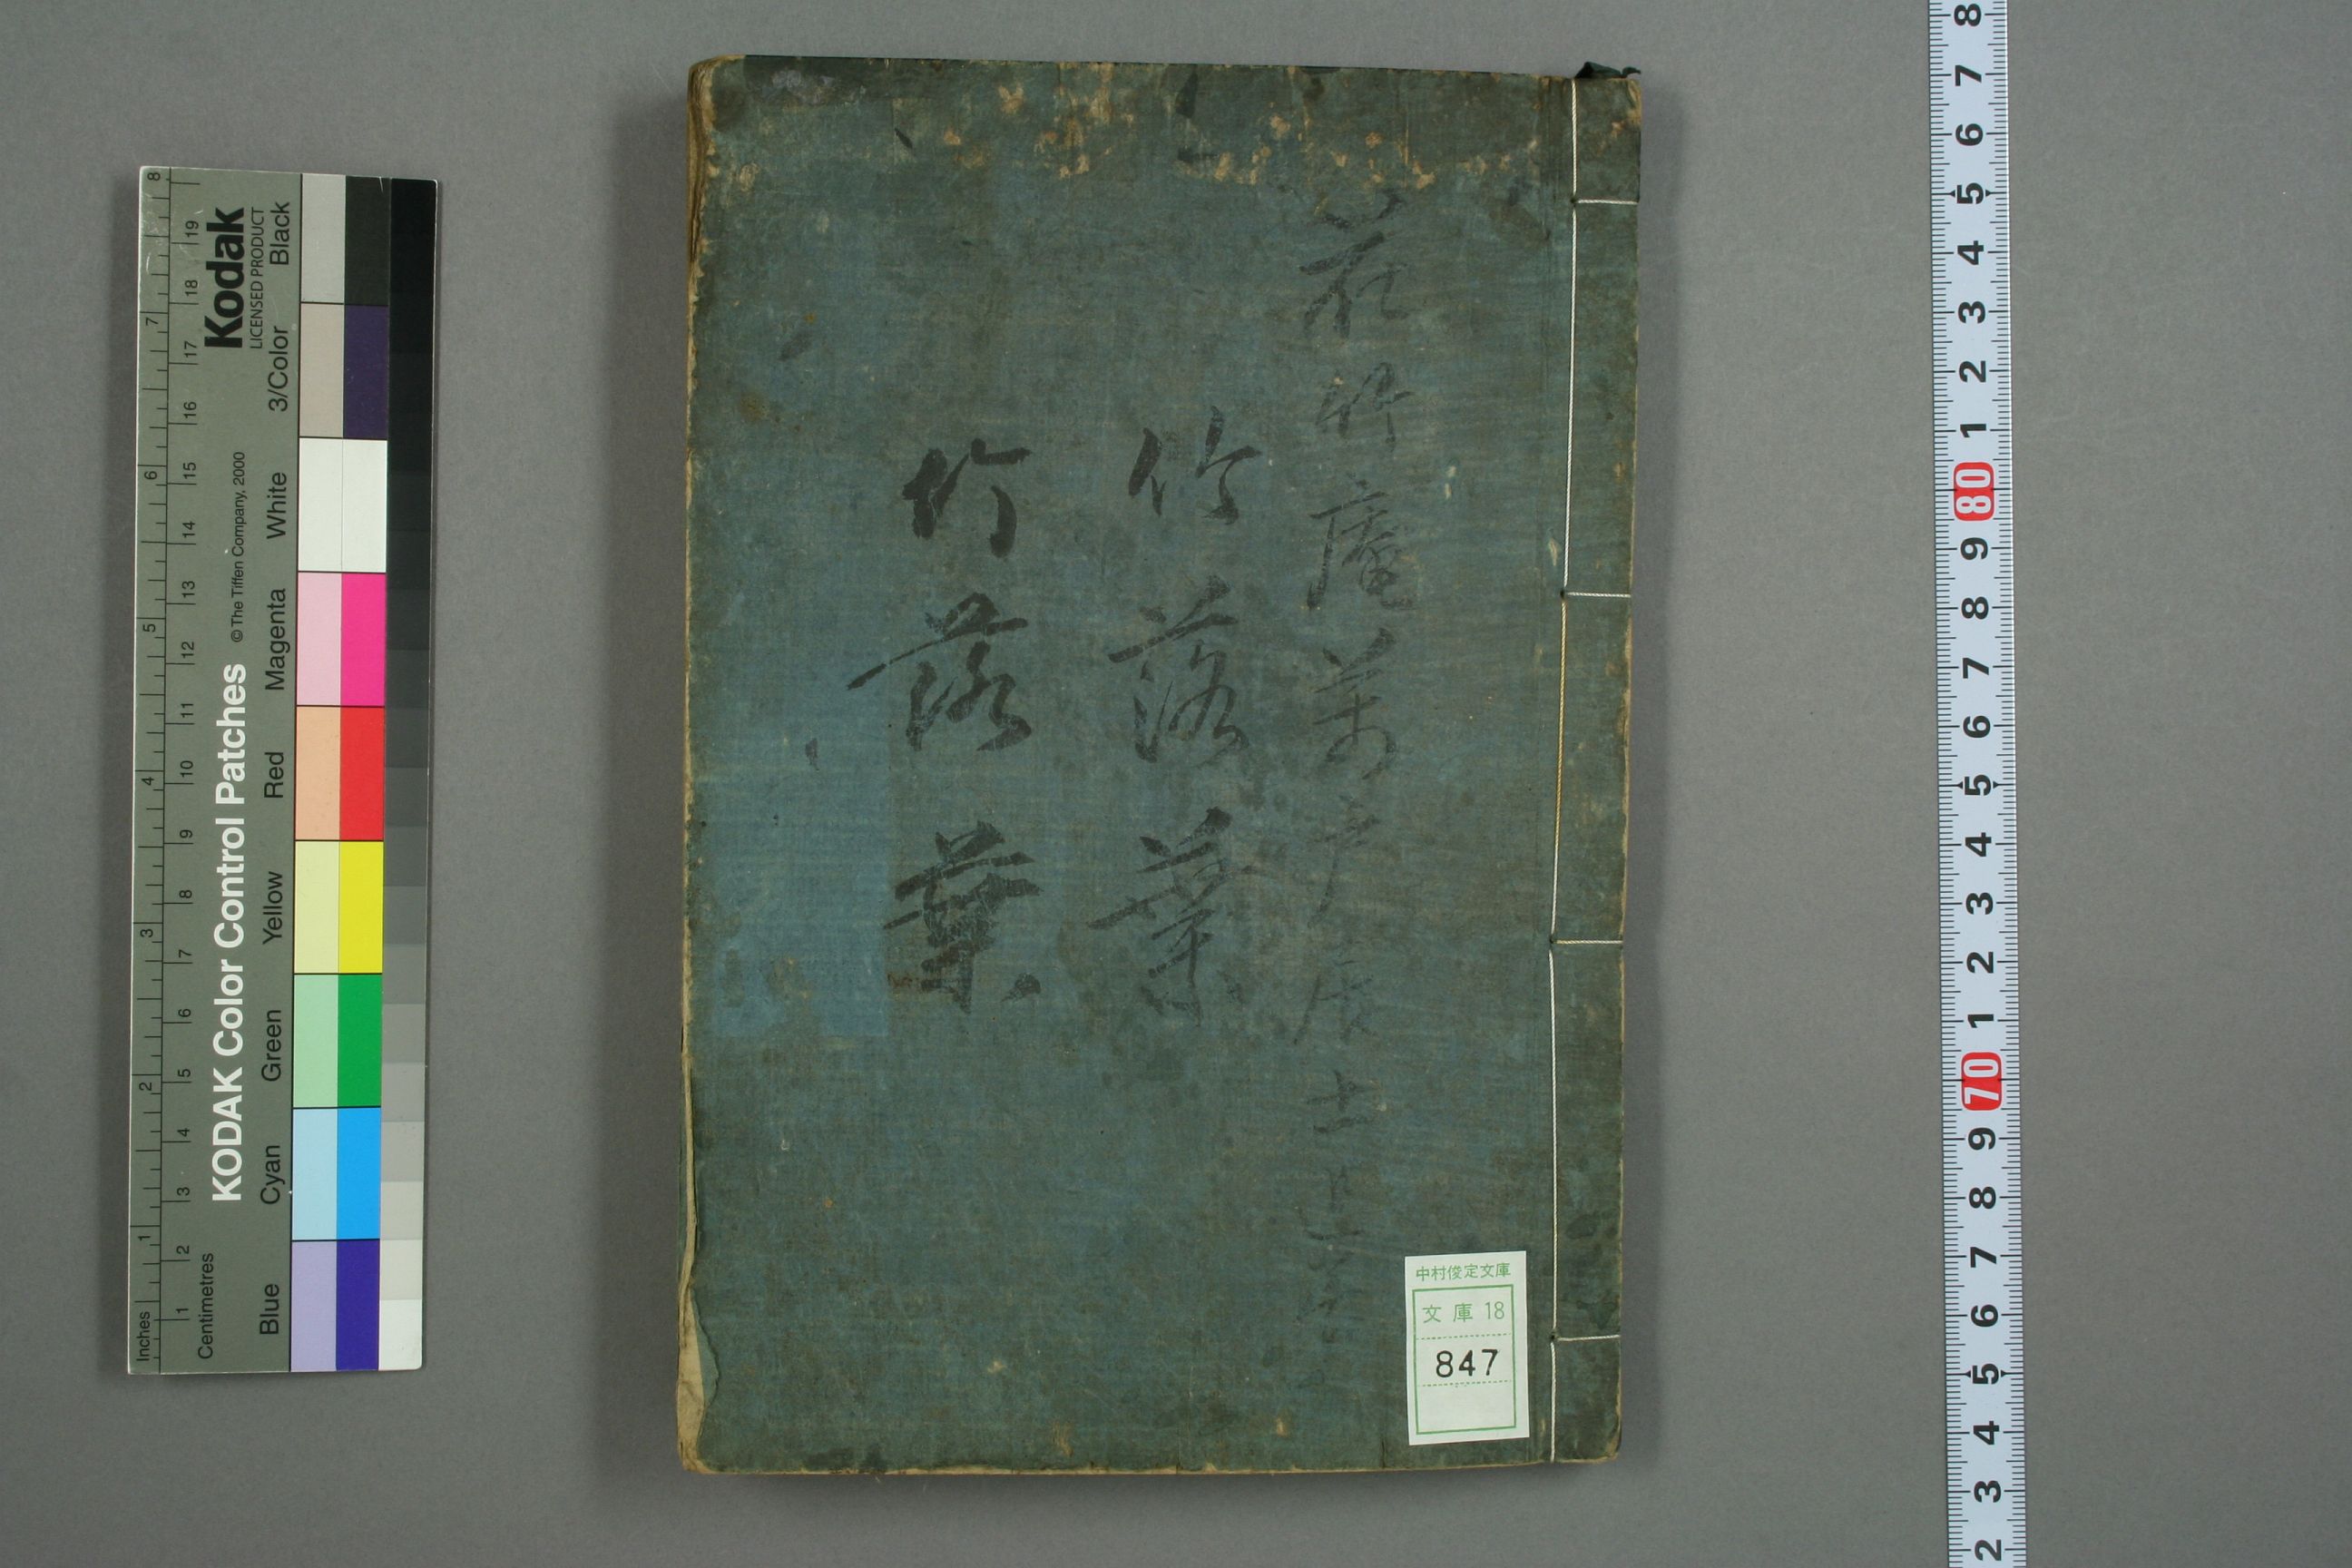 竹落葉
竹落葉
中村俊定文庫
文庫 18
847
Kodak
LICENSED PRODUCT
KODAK Color Control Patches
© The Tiffen Company, 2000
Black
3/Color
White
Magenta
Red
Yellow
Green
Cyan
Blue
Inches
1 2 3 4 5 6 7 8
Centimetres
1 2 3 4 5 6 7 8 9 10 11 12 13 14 15 16 17 18 19
8 7 6 5 4 3 2 1 80 9 8 7 6 5 4 3 2 1 70 9 8 7 6 5 4 3 2